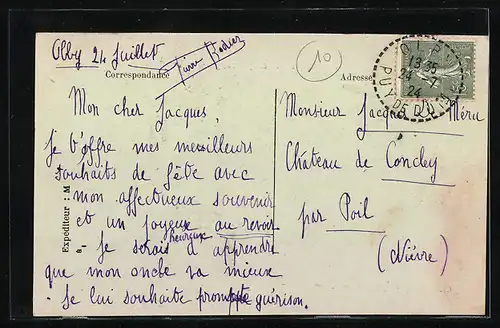 Olby 24 Juillet
Pierre
10
Correspondance
Adresse
Mon cher Jacques,
je t'offre mes meilleurs
souhaits de fête avec
mon affectueux souvenir
et un joyeux au revoir
Je serais heureux d'apprendre
que mon oncle va mieux
. Je lui souhaite prompte guérison.
Expéditeur : M
à
Monsieur Jacques Méru
Château de Concley
par Poil
(Nièvre)
13 35
24 - 7
24
PUY DE DOME